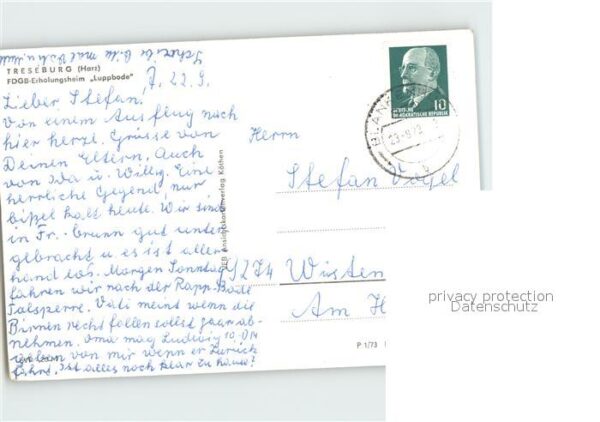 Schreibe bitte mal
TRESEBURG (Harz)
FDGB-Erholungsheim „Luppbode“
d. 22.9.
Lieber Stefan!
Von einem Ausflug nach
hier herzl. Grüsse von
Deinen Eltern. Auch
von Ida u. Willy. Eine
herrliche Gegend, nur
bißel kalt heute. Wir sind
in Fr.-brunn gut unter
gebracht u. es ist aller
hand los. Morgen Sonntag
fahren wir nach der Rapp-Bode
Talsperre. Vati meint wenn die
Birnen recht fallen sollst ab-
nehmen. Oma mag Ludwig 10,- DM
geben von mir wenn er zurück
fährt. Ist alles noch klar zu hause?
VEB Ansichtskartenverlag Köthen
10
DEMOKRATISCHE REPUBLIK
Herrn
Stefan Vogel
9274 Wüsten
Am H
P 1/73
privacy protection
Datenschutz